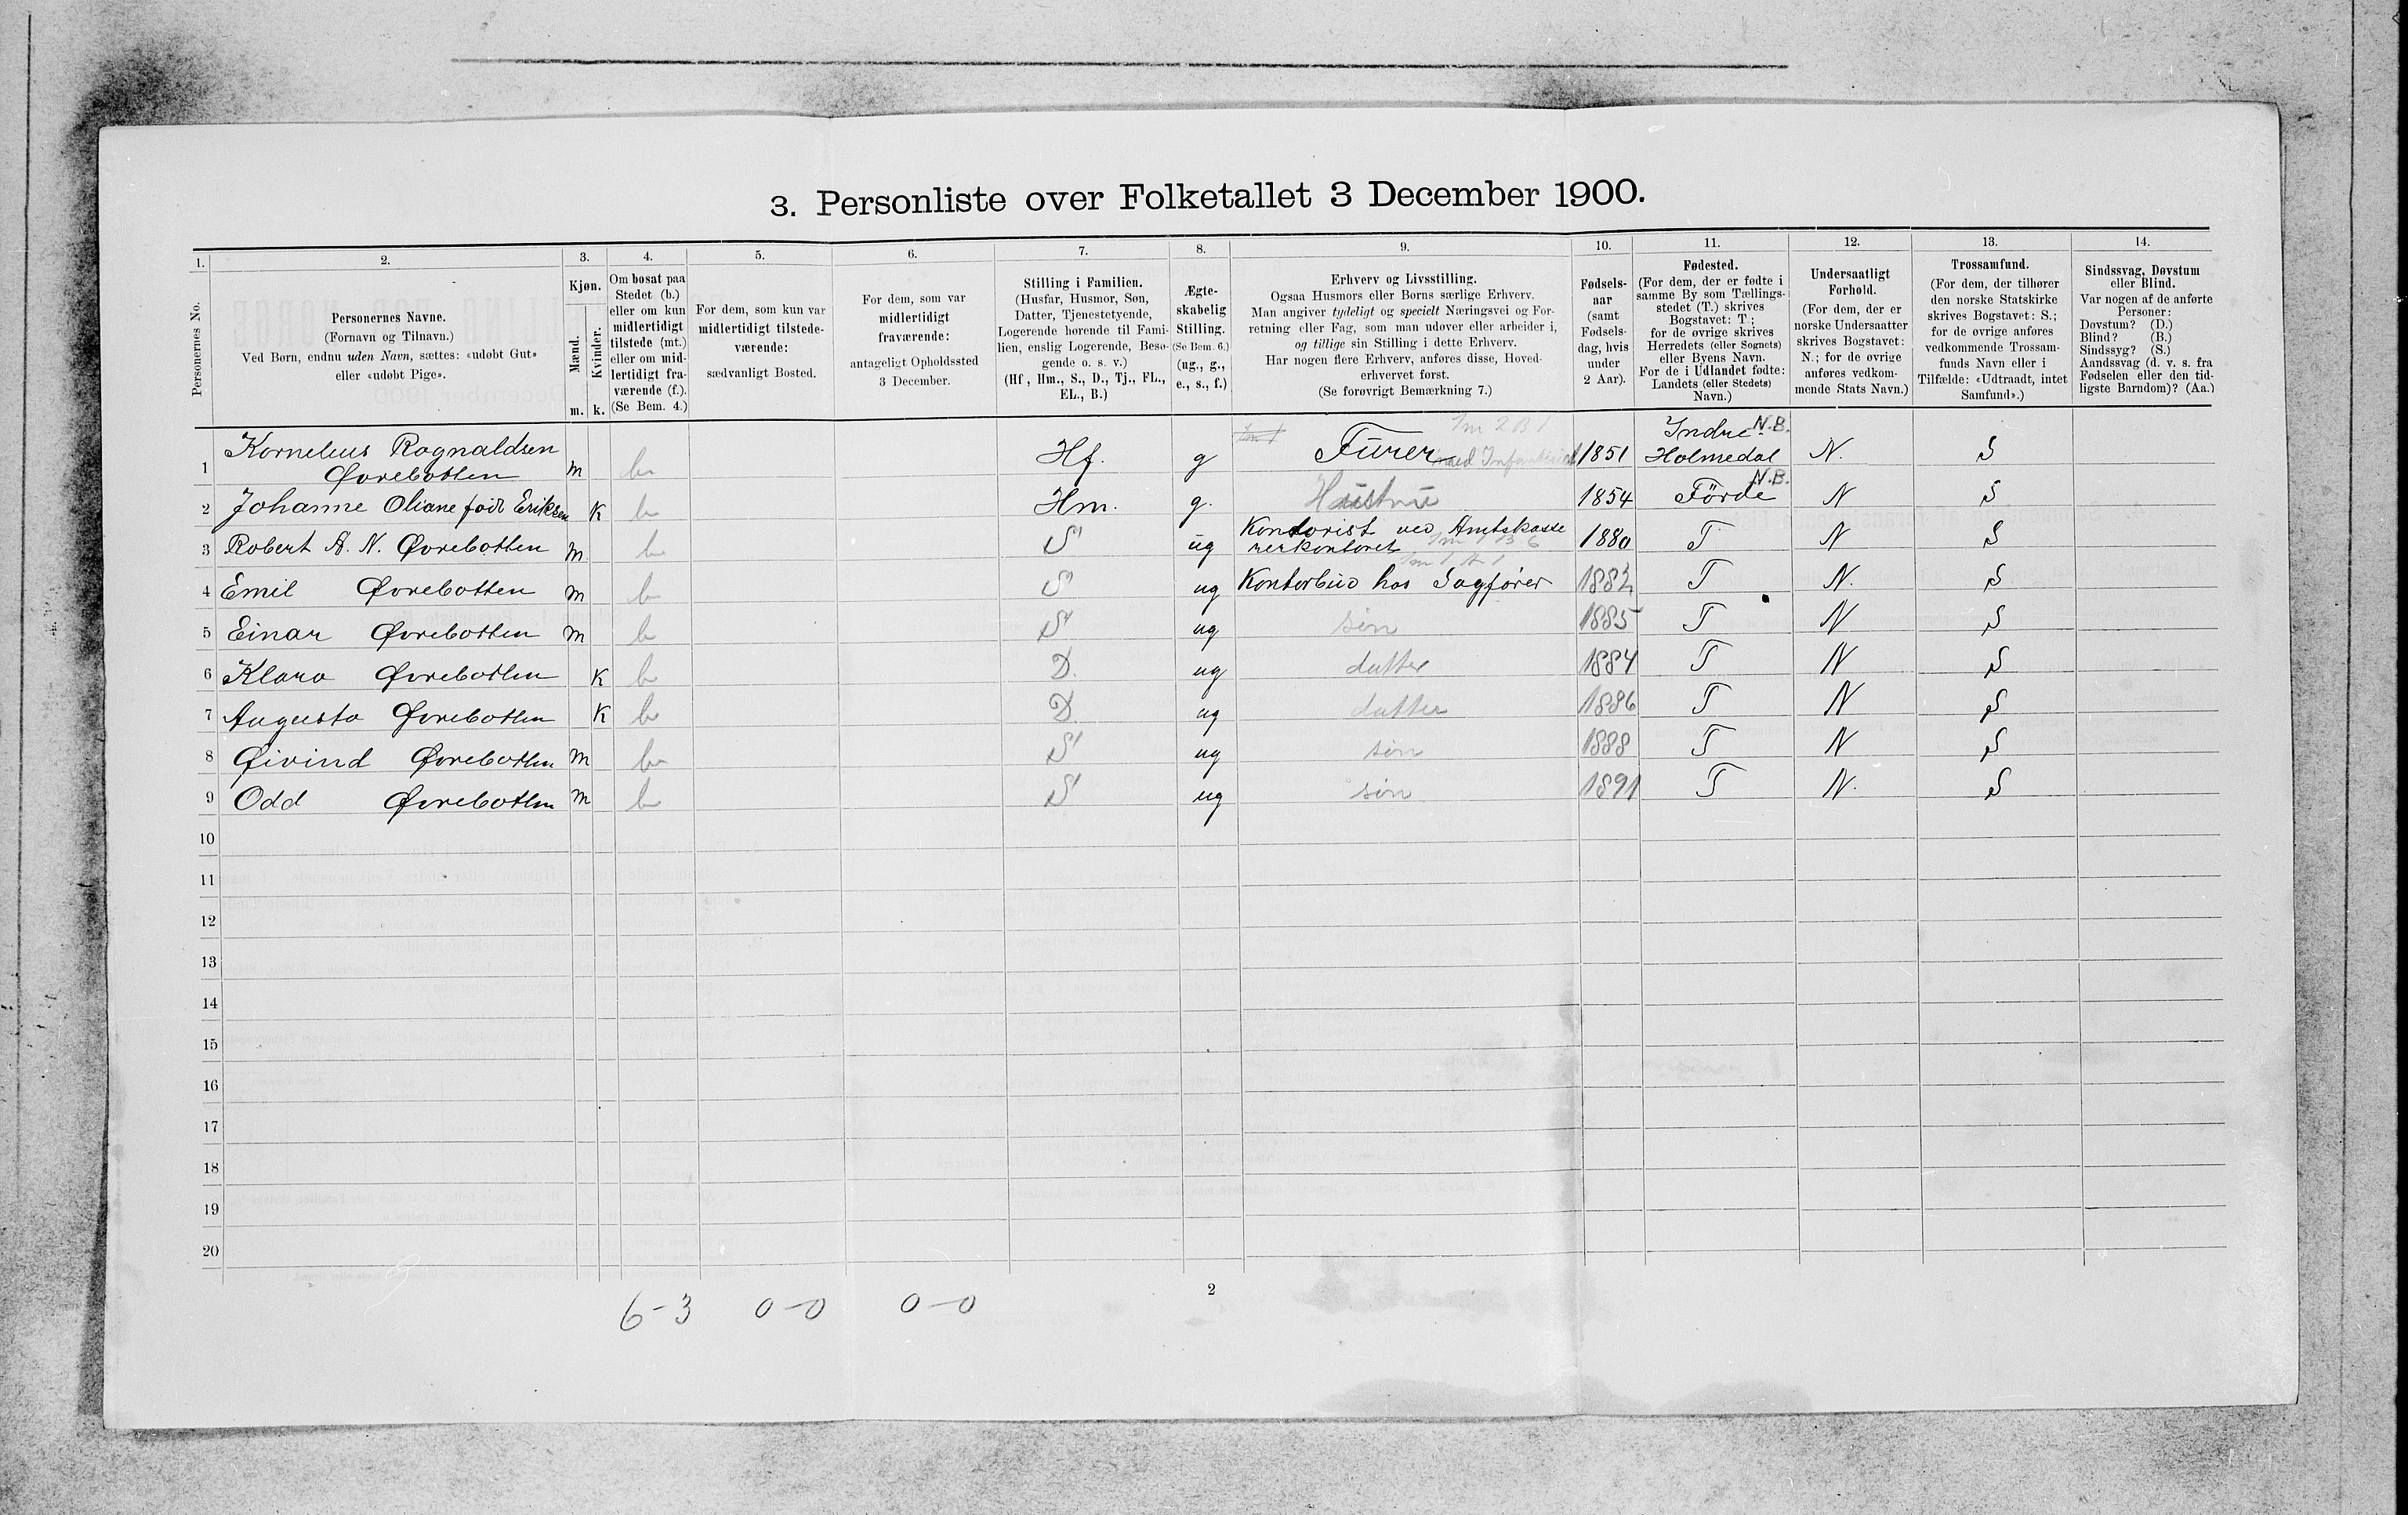 3. Personliste over Folketallet 3 December 1900.
1. 2. 3. 4. 5. 6. 7. 8. 9. 10. 11. 12. 13. 14.
Personernes No.
Personernes Navne.
(Fornavn og Tilnavn.)
Ved Børn, endnu uden Navn, sættes: «udøbt Gut»
eller «udøbt Pige».
Kjøn.
Mænd.
Kvinder.
m. k.
Om bosat paa
Stedet (b.)
eller om kun
midlertidigt
tilstede (mt.)
eller om mid-
lertidigt fra-
værende (f.).
(Se Bem. 4.)
For dem, som kun var
midlertidigt tilstede-
værende:
sædvanligt Bosted.
For dem, som var
midlertidigt
fraværende:
antageligt Opholdssted
3 December.
Stilling i Familien.
(Husfar, Husmor, Søn,
Datter, Tjenestetyende,
Logerende hørende til Fami-
lien, enslig Logerende, Besø-
gende o. s. v.)
(Hf, Hm., S., D., Tj., FL.,
EL., B.)
Ægte-
skabelig
Stilling.
(Se Bem. 6.)
(ug., g.,
e., s., f.)
Erhverv og Livsstilling.
Ogsaa Husmors eller Børns særlige Erhverv.
Man angiver tydeligt og specielt Næringsvei og For-
retning eller Fag, som man udøver eller arbeider i,
og tillige sin Stilling i dette Erhverv.
Har nogen flere Erhverv, anføres disse, Hoved-
erhvervet først.
(Se forøvrigt Bemærkning 7.)
Fødsels-
aar
(samt
Fødsels-
dag, hvis
under
2 Aar).
Fødested.
(For dem, der er fødte i
samme By som Tællings-
stedet (T.) skrives
Bogstavet: T;
for de øvrige skrives
Herredets (eller Sognets)
eller Byens Navn.
For de i Udlandet fødte:
Landets (eller Stedets)
Navn.)
Undersaatligt
Forhold.
(For dem, der er
norske Undersaatter
skrives Bogstavet:
N.; for de øvrige
anføres vedkom-
mende Stats Navn.)
Trossamfund.
(For dem, der tilhører
den norske Statskirke
skrives Bogstavet: S.;
for de øvrige anføres
vedkommende Trossam-
funds Navn eller i
Tilfælde: «Udtraadt, intet
Samfund».)
Sindssvag, Døvstum
eller Blind.
Var nogen af de anførte
Personer:
Døvstum? (D.)
Blind? (B.)
Sindssyg? (S.)
Aandssvag (d. v. s. fra
Fødselen eller den tid-
ligste Barndom)? (Aa.)
Im 1 Im 2 B 1 Indre N.B.
1 Kornelius Ragnaldsen Øvrebotten m b Hf. g Furer ved Infanteriet 1851 Holmedal N. S
N.B.
2 Johanne Oliane født Eriksen k b Hm. g. Hustru 1854 Förde N S
3 Robert A. N. Øvrebotten m b S ug Kontorist ved Amtskasse
rerkontoret Im 1 B 6 1880 T N S
Im 1 A 1
4 Emil Øvrebotten m b S ug Kontorbud hos Sagfører 1882 T N. S
5 Einar Øvrebotten m b S ug søn 1885 T N S
6 Klara Øvrebotten k b D. ug datter 1884 T N S
7 Augusta Øvrebotten k b D ug datter 1886 T N S
8 Øivind Øvrebotten m b S ug søn 1888 T N S
9 Odd Øvrebotten m b S ug søn 1891 T N. S
10
11
12
13
14
15
16
17
18
19
20
2
6-3 0-0 0-0